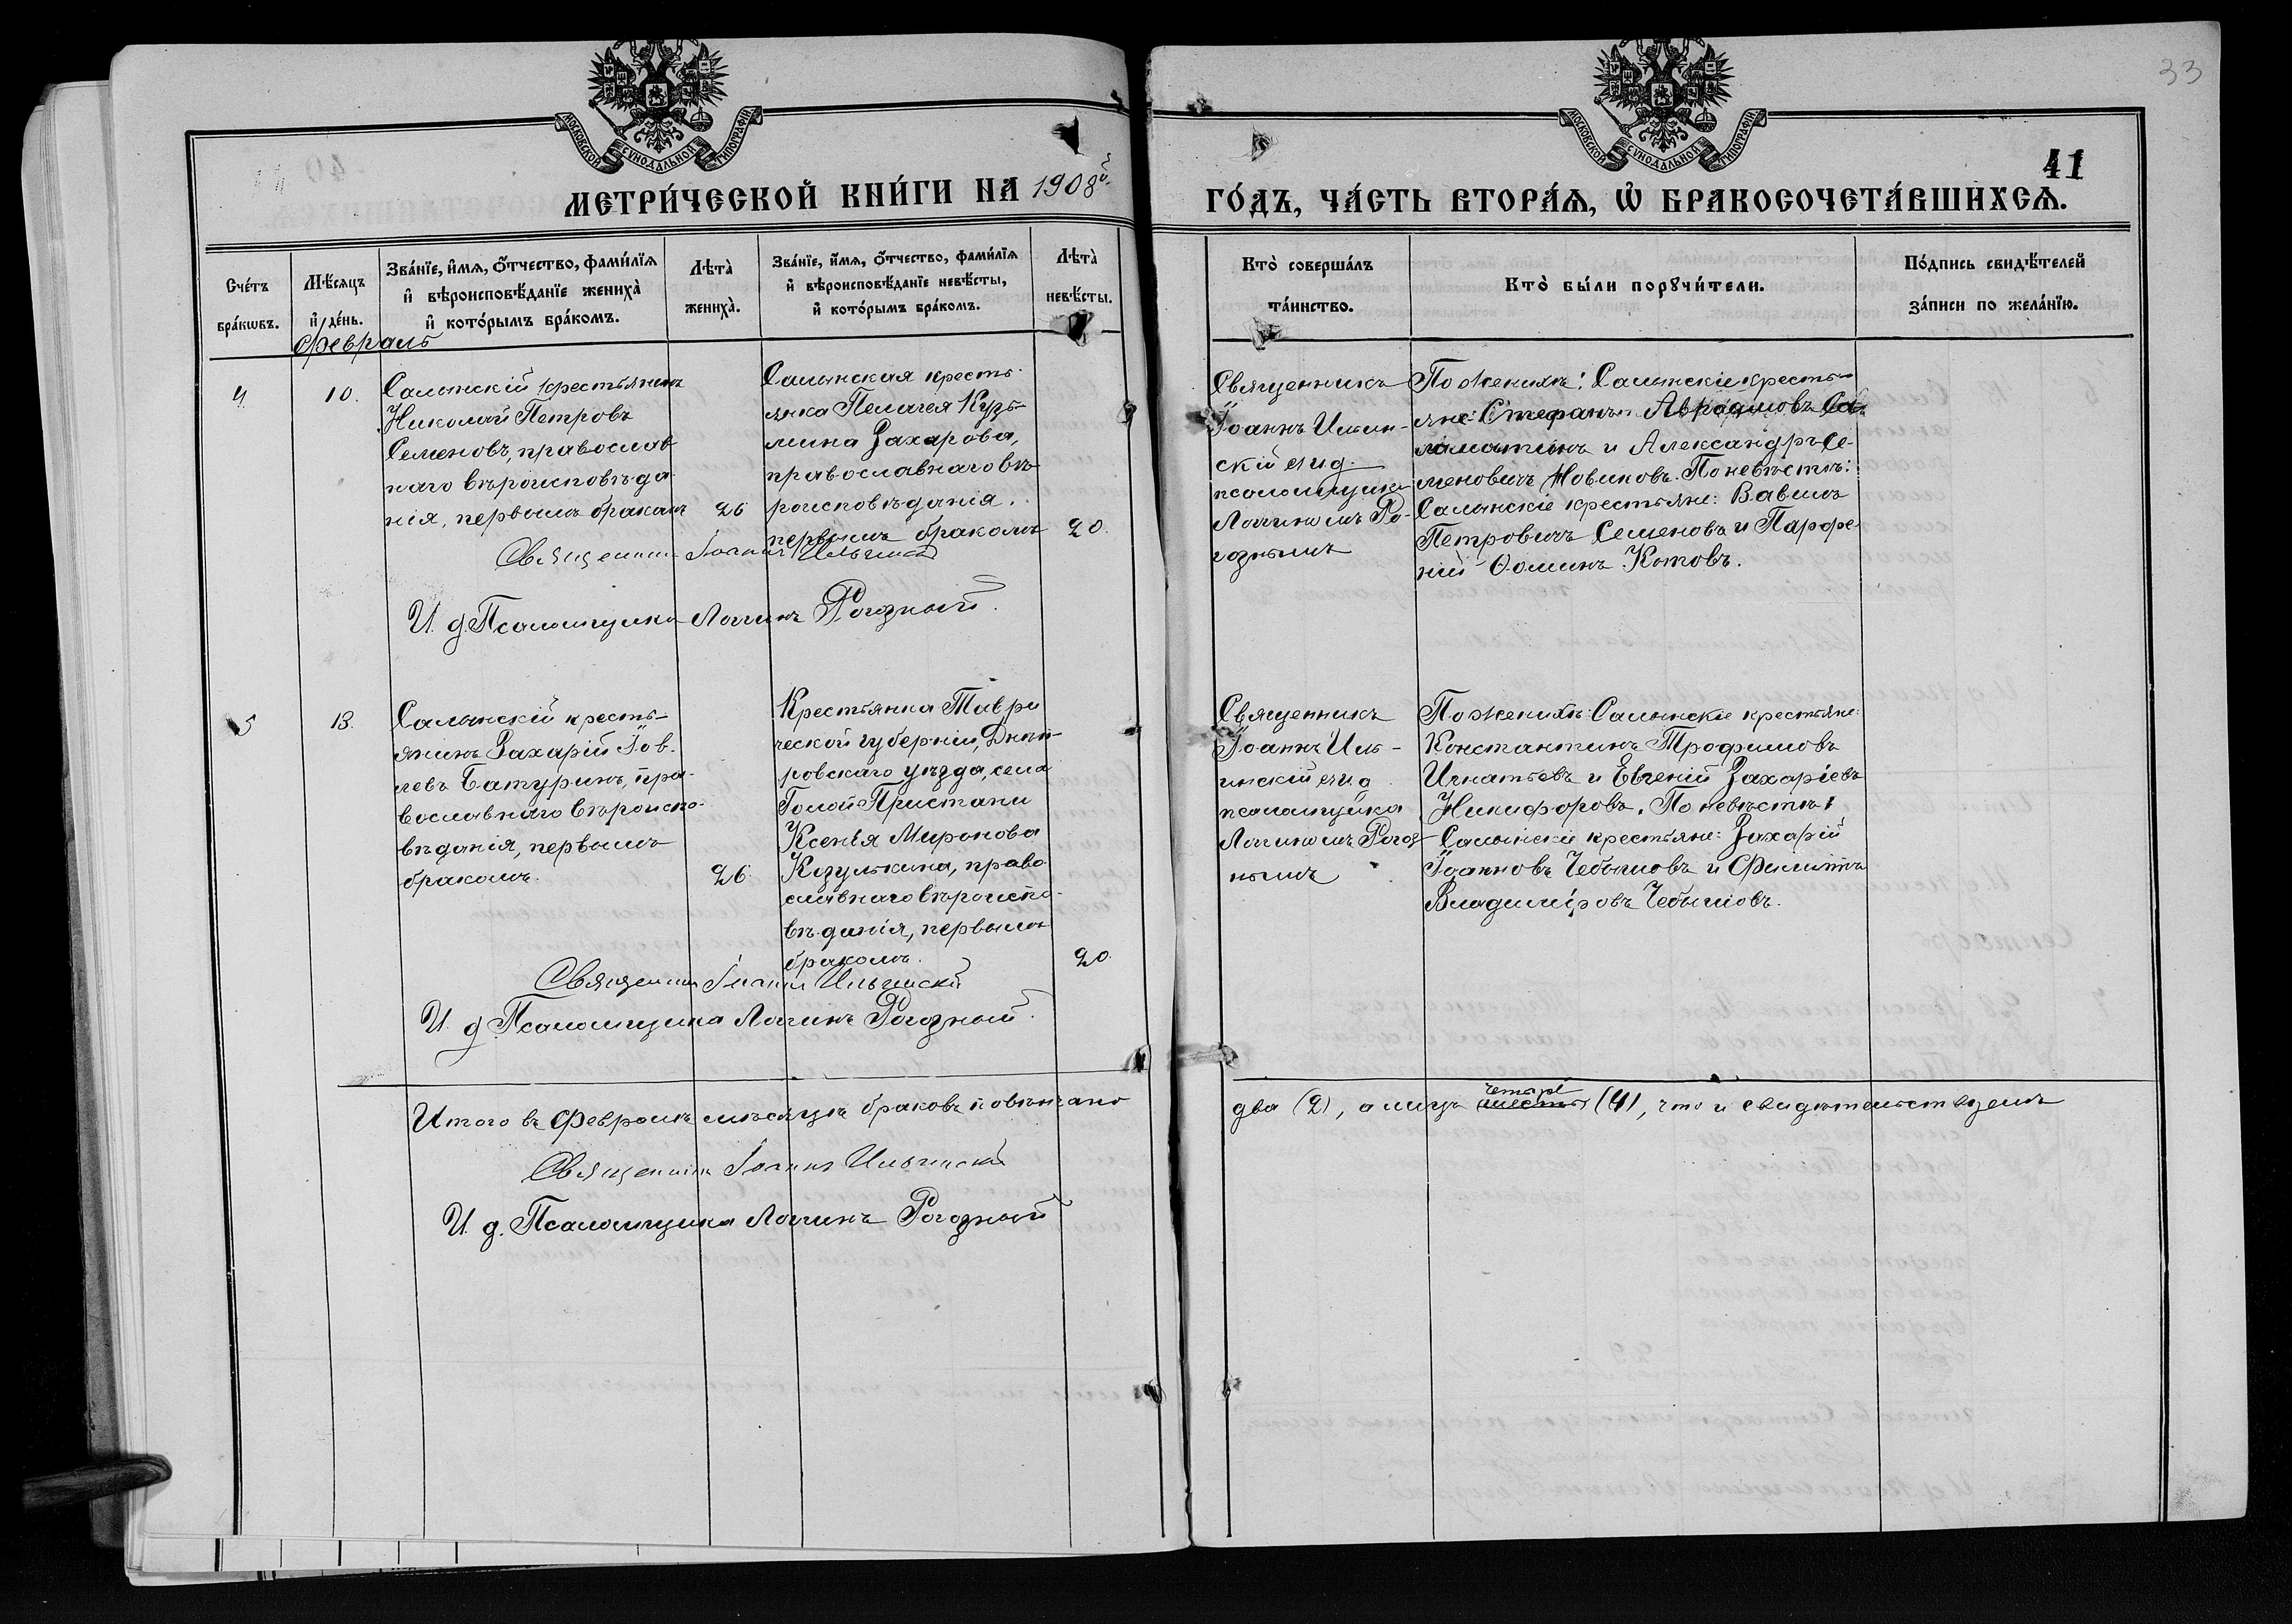 33
41
МОСКОВСКОЙ СУНОДАЛЬНОЙ ТИПОГРАФІИ
МОСКОВСКОЙ СУНОДАЛЬНОЙ ТИПОГРАФІИ
МЕТРИ́ЧЕСКОЙ КНИ́ГИ НА 1908й
ГО́ДЪ, ЧА́СТЬ ВТОРА́Я, Ѡ҆ БРАКОСОЧЕТА́ВШИХСЯ.
Сче́тъ
бра́кѡвъ.
Мѣ́сяцъ
и҆ де́нь.
Зва́нїе, и҆́мя, ѻ҆́тчество, фами́лїя
и҆ вѣроисповѣ́данїе жениха̀
и҆ кото́рымъ бра́комъ.
Лѣта̀
жениха̀.
Зва́нїе, и҆́мя, ѻ҆́тчество, фами́лїя
и҆ вѣроисповѣ́данїе невѣ́сты,
и҆ кото́рымъ бра́комъ.
Лѣта̀
невѣ́сты.
Кто̀ соверша́лъ
та́инство.
Кто̀ бы́ли порꙋчи́тели.
По́дпись свидѣ́телей
за́писи по жела́нїю.
Февраль
4
10.
Салынскій крестьянинъ
Николай Петровъ
Семеновъ, православ
наго вѣроисповѣда
нія, первымъ бракомъ
26
Салынская кресть
янка Пелагея Кузь-
мина Захарова,
православнаго вѣ
роисповѣданія.
первымъ бракомъ
20.
Священникъ
Іоаннъ Ильин-
скій с и. д.
псаломщика
Логиномъ Ро-
гознымъ
По женихѣ: Салынскіе кресть-
яне: Стефанъ Аврамовъ Са
ломатинъ и Александръ Се-
меновичъ Новиковъ. По невѣстѣ:
Салынскіе крестьяне: Вавилъ
Петровичъ Семеновъ и Парфе-
ній Ѳоминъ Котовъ.
Священникъ Іоаннъ Ильинскій
И. д. Псаломщика Логинъ Рогозный.
5
13.
Салынскій кресть-
янинъ Захарій Іов-
левъ Батуринъ, пра-
вославнаго вѣроиспо-
вѣданія, первымъ
бракомъ.
26
Крестьянка Таври
ческой губерніи, Днѣп-
ровскаго уѣзда, села
Голой Пристани
Ксенія Миронова
Козулькина, право
славнаго вѣроиспо-
вѣданія, первымъ
бракомъ.
20.
Священникъ
Іоаннъ Иль-
инскій с и. д
псаломщика
Логиномъ Рогоз
нымъ
По женихѣ: Салынскіе крестьяне:
Константинъ Трофимовъ
Игнатьевъ и Евгеній Захаріевъ
Никифоровъ. По невѣстѣ:
Салынскіе крестьяне: Захарій
Іоанновъ Чебышовъ и Филиппъ
Владиміровъ Чебышовъ.
Священникъ Іоаннъ Ильинскій
И. д. Псаломщика Логинъ Рогозный.
Итого въ Февралѣ мѣсяцѣ браковъ повѣнчано два (2), а лицъ шесть четыре (4), что и свидѣтельствуемъ
Священникъ Іоаннъ Ильинскій
И. д. Псаломщика Логинъ Рогозный